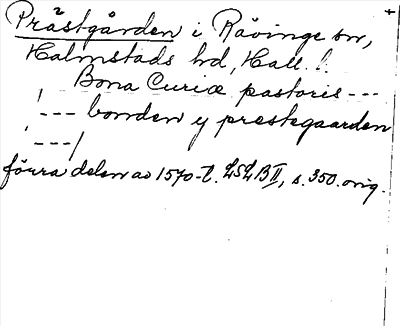 Prästgården i Rävinge sn,
Halmstads hd, Hall. l.
Bona Curiæ pastoris ---
--- bonden y prestgaarden
---/
förra delen av 1570-t. LSLB II, s. 350. orig.